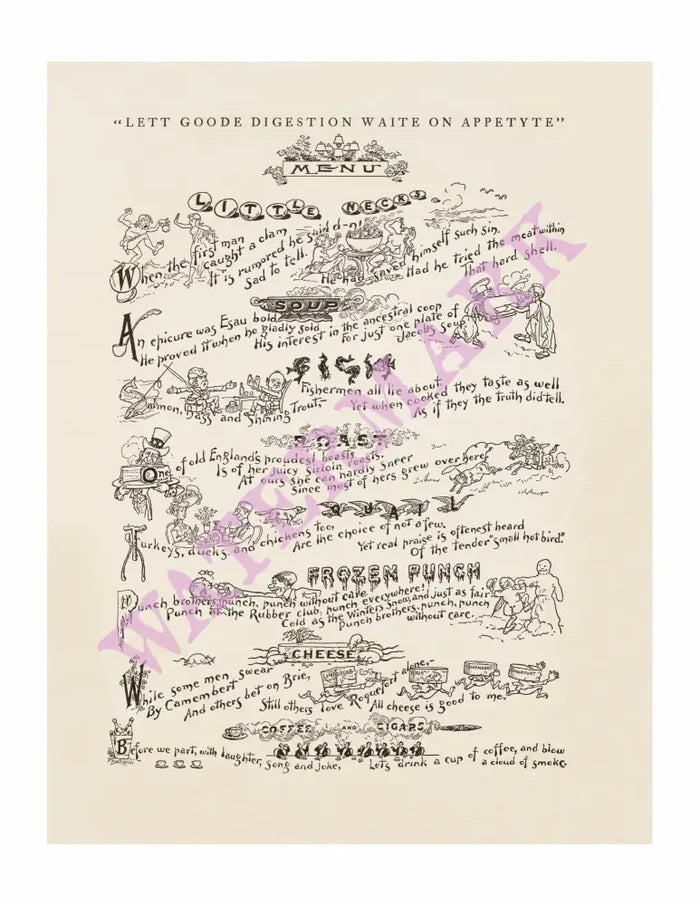 "LETT GOODE DIGESTION WAITE ON APPETYTE"
MENU
LITTLE NECKS
When the first man
caught a clam,
It is rumored he said d-n!
Sad to tell.
He had saved himself such sin.
Had he tried the meat within
That hard shell.
SOUP
An epicure was Esau bold
He proved it when he gladly sold
His interest in the ancestral coop
For just one plate of
Jacobs Soup
FISH
Fishermen all lie about,
Salmon, bass and Shining Trout,
Yet when cooked they taste as well
As if they the truth did tell.
ROAST
One of old England's proudest boasts
Is of her juicy sirloin roasts.
At ours she can hardly sneer
Since most of hers grew over here.
QUAIL
Turkeys, ducks, and chickens too,
Are the choice of not a few.
Yet real praise is oftenest heard
Of the tender "small hot bird."
FROZEN PUNCH
Punch brothers, punch, punch without care,
Punch at the Rubber club, punch everywhere!
Cold as the Winter's Snow, and just as fair
Punch brothers, punch, punch
without care.
CHEESE
While some men swear
By Camembert
And others bet on Brie,
Still others love Roquefort alone.
All cheese is good to me.
COFFEE AND CIGARS
Before we part, with laughter, song and joke,
Lets drink a cup of coffee, and blow
a cloud of smoke.
WATERMARK